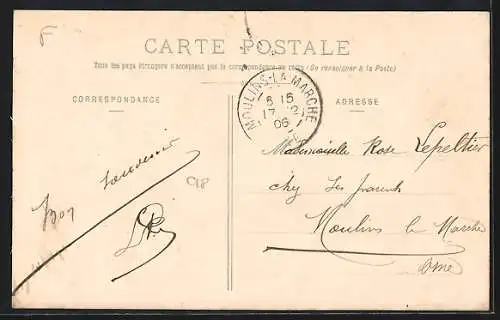 F
CARTE POSTALE
Tous les pays étrangers n'acceptent pas la correspondance au recto (Se renseigner à la Poste)
CORRESPONDANCE
ADRESSE
MOULINS-LA-MARCHE
6 15
17
06
Mademoiselle Rose Lepeltier
chez Ses parents
Moulins la Marche
Orne
Souvenir